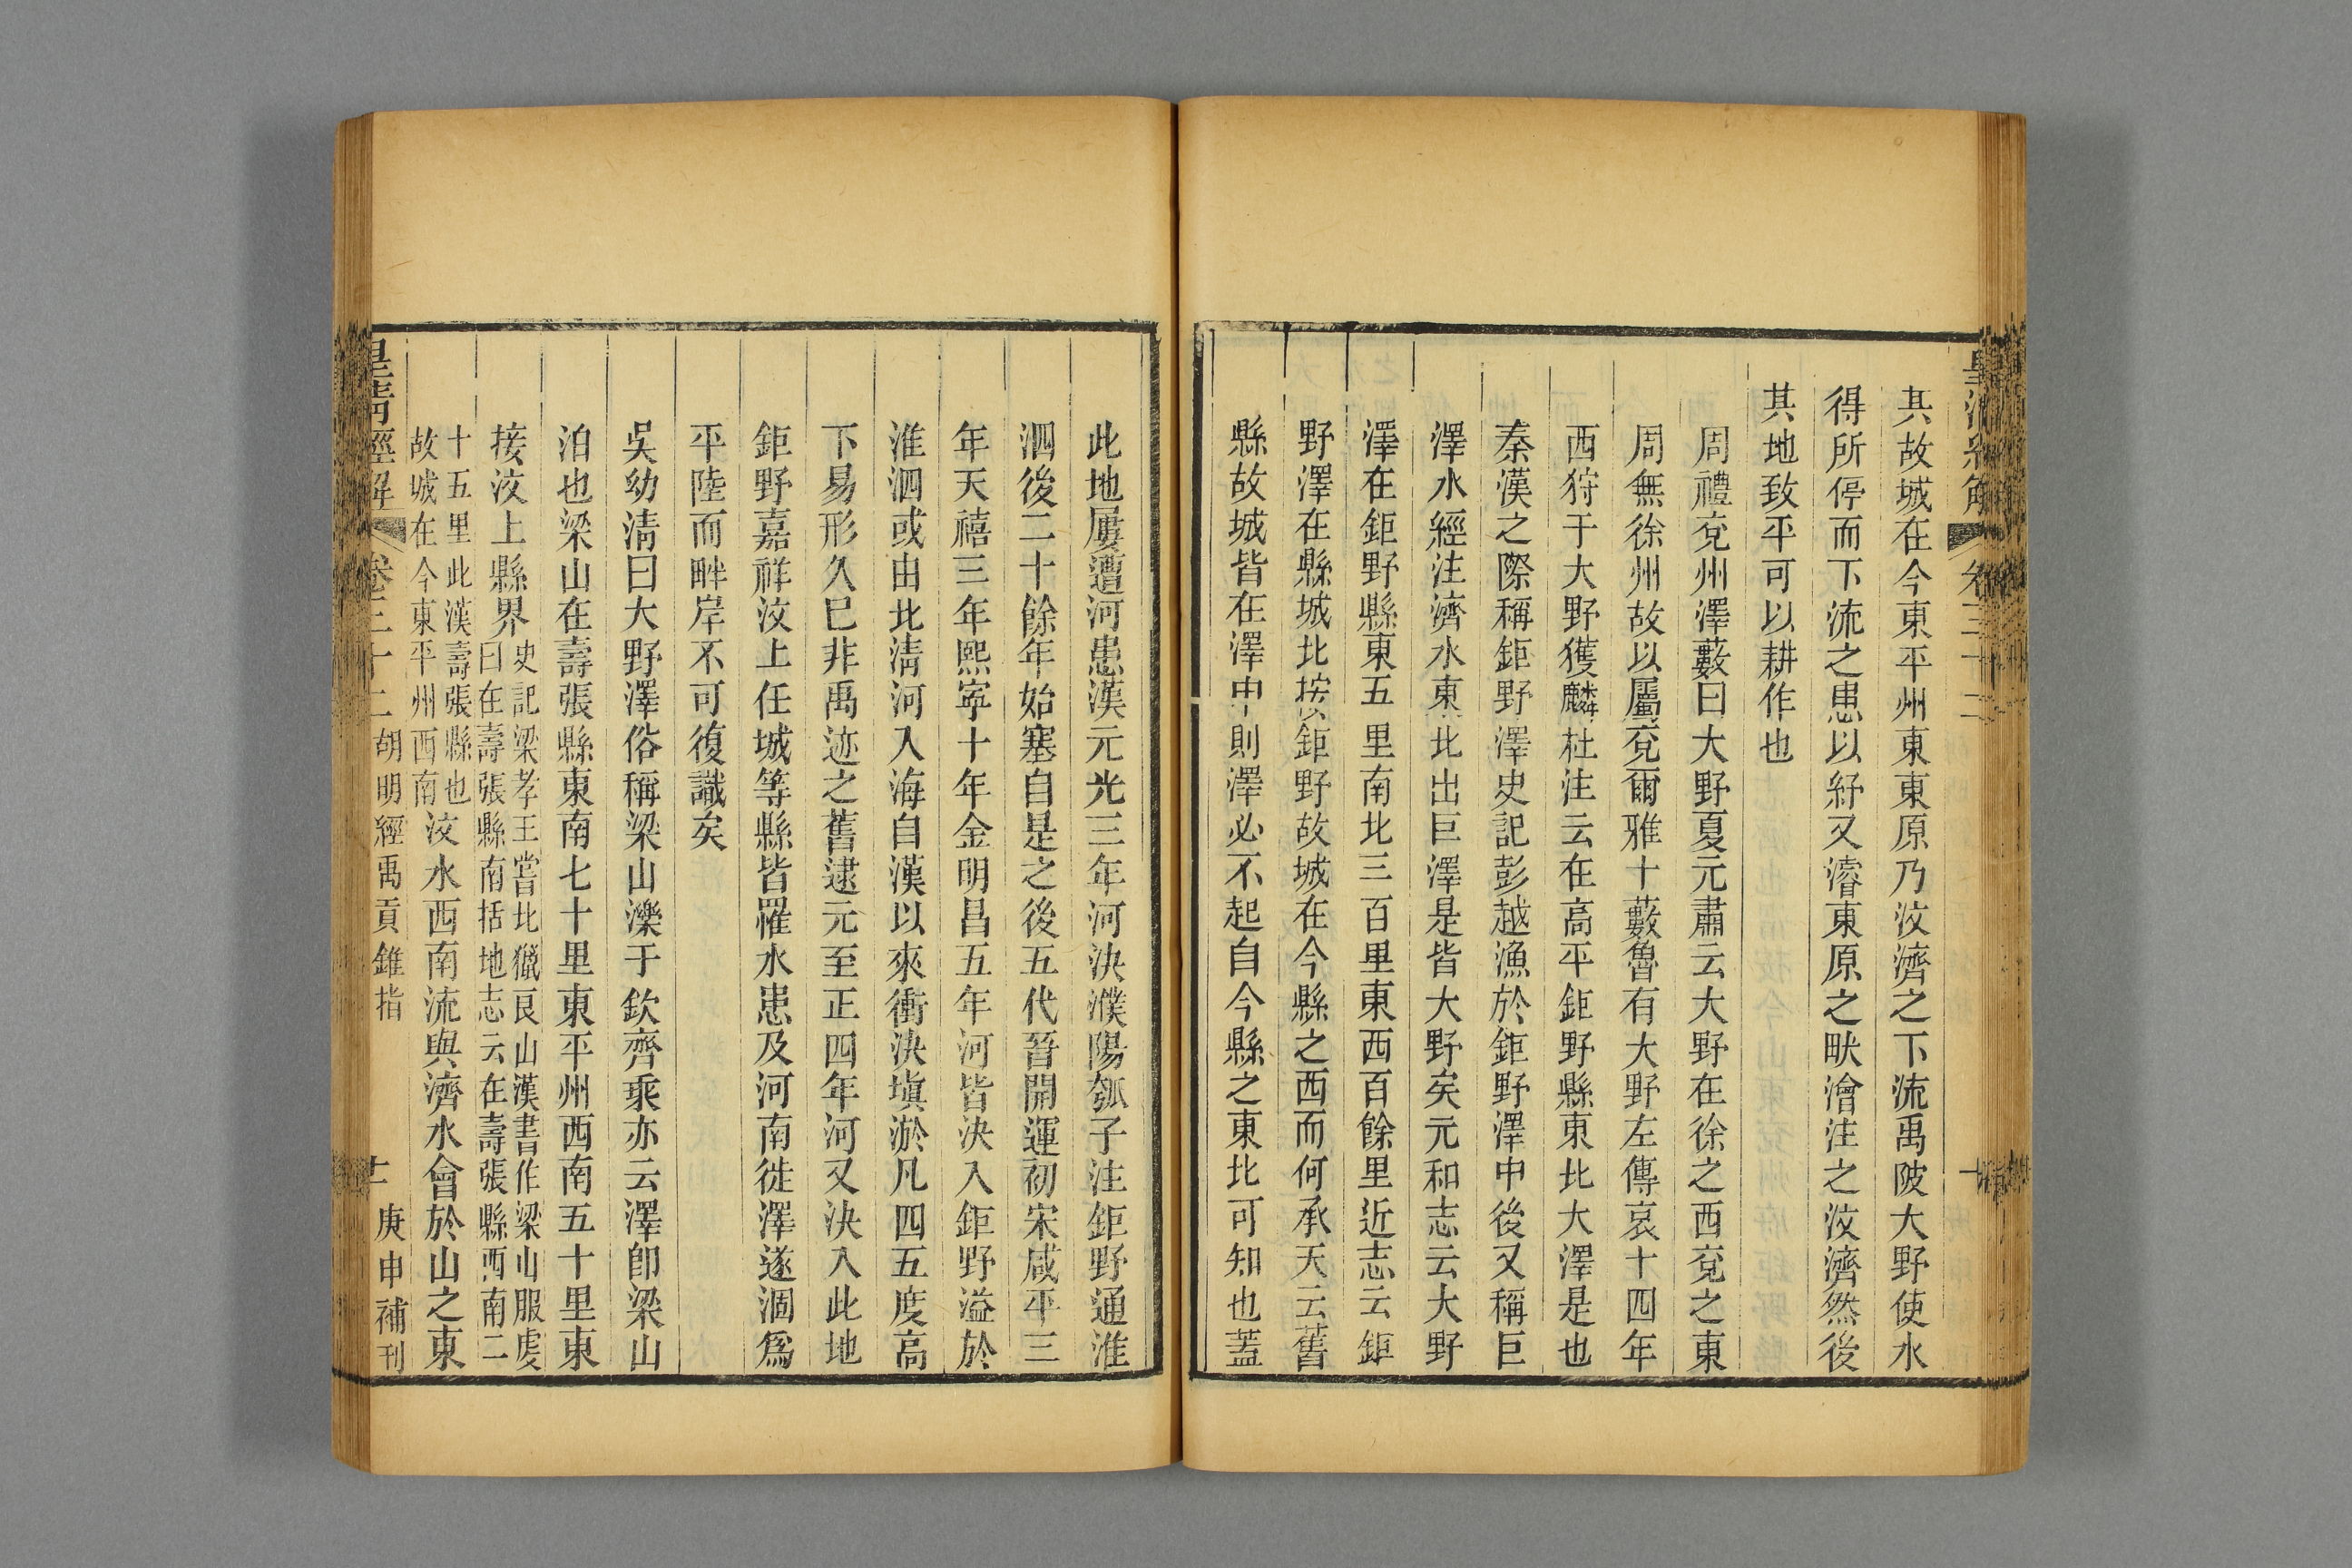 其故城在今東平州東東原乃汶濟之下流禹陂大野使水
得所停而下流之患以紓又濬東原之畎澮注之汶濟然後
其地致平可以耕作也
周禮兗州澤藪曰大野夏元肅云大野在徐之西兗之東
周無徐州故以屬兗爾雅十藪魯有大野左傳哀十四年
西狩于大野獲麟杜注云在高平鉅野縣東北大澤是也
秦漢之際稱鉅野澤史記彭越漁於鉅野澤中後又稱巨
澤水經注濟水東北出巨澤是皆大野矣元和志云大野
澤在鉅野縣東五里南北三百里東西百餘里近志云鉅
野澤在縣城北按鉅野故城在今縣之西而何承天云舊
縣故城皆在澤中則澤必不起自今縣之東北可知也蓋
此地屢遭河患漢元光三年河決濮陽瓠子注鉅野通淮
泗後二十餘年始塞自是之後五代晉開運初宋咸平三
年天禧三年熙寧十年金明昌五年河皆決入鉅野溢於
淮泗或由北清河入海自漢以來衝決填淤凡四五度高
下易形久已非禹迹之舊逮元至正四年河又決入此地
鉅野嘉祥汶上任城等縣皆罹水患及河南徙澤遂涸為
平陸而畔岸不可復識矣
吳幼清曰大野澤俗稱梁山濼于欽齊乘亦云澤卽梁山
泊也梁山在壽張縣東南七十里東平州西南五十里東
接汶上縣界史記梁孝王嘗北獵良山漢書作梁山服虔
曰在壽張縣南括地志云在壽張縣西南二
十五里此漢壽張縣也
故城在今東平州西南汶水西南流與濟水會於山之東
皇清經解 卷三十二 胡明經禹貢錐指 十一 庚申補刊